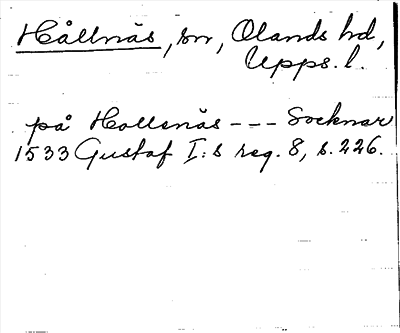 Hållnäs, sn, Olands hd,
Upps. l.
på Hollsnäs --- Socknar
1533 Gustaf I:s reg. 8, s. 226.